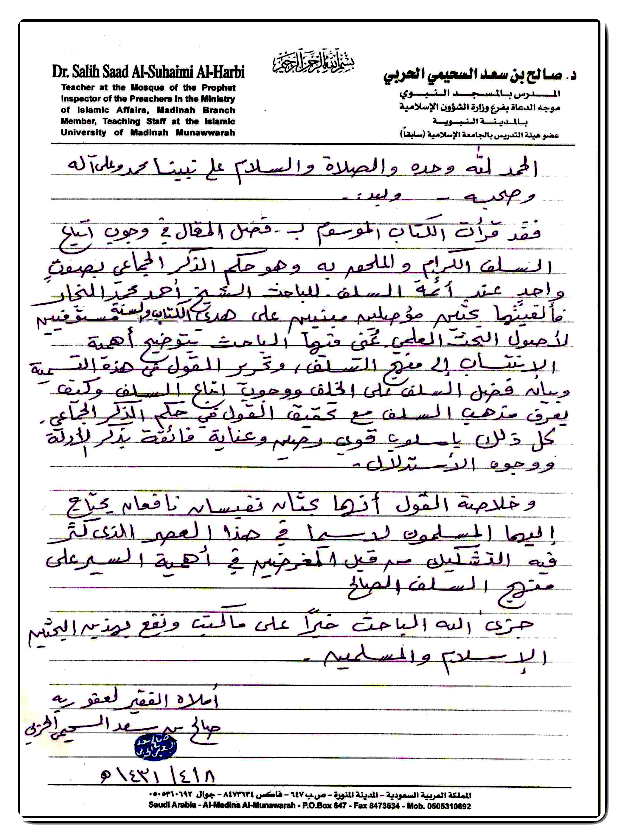 بسم الله الرحمن الرحيم
Dr. Salih Saad Al-Suhaimi Al-Harbi
Teacher at the Mosque of the Prophet
Inspector of the Preachers in the Ministry
of Islamic Affairs, Madinah Branch
Member, Teaching Staff at the Islamic
University of Madinah Munawwarah
د. صالح بن سعد السحيمي الحربي
المدرس بالمسجد النبوي
موجه الدعاة بفرع وزارة الشؤون الإسلامية
بالمدينة النبوية
عضو هيئة التدريس بالجامعة الإسلامية (سابقاً)
الحمد لله وحده والصلاة والسلام على نبينا محمد وعلى آله
وصحبه - وبعد:.
فقد قرأت الكتاب الموسوم بـ فضل المقال في وجوب اتباع
السلف الكرام والملحق به وهو حكم الذكر الجماعي بصوت
واحد عند أئمة السلف للباحث الشيخ أحمد محمد النجار
فألفيتهما بحثين مؤصلين مبنيين على هدي الكتاب والسنة مستوفيين
لأصول البحث العلمي عُني فيهما الباحث بتوضيح أهمية
الانتساب إلى منهج السلف، وتحرير القول في هذه التسمية
وبيان فضل السلف على الخلف ووجوب اتباع السلف وكيف
يعرف مذهب السلف مع تحقيق القول في حكم الذكر الجماعي
كل ذلك بأسلوب قوي رصين وعناية فائقة بذكر الأدلة
ووجوه الاستدلال.
وخلاصة القول أنهما بحثان نفيسان نافعان يحتاج
إليهما المسلمون لاسيما في هذا العصر الذي كثر
فيه التشكيك من قبل المغرضين في أهمية السير على
منهج السلف الصالح
جزى الله الباحث خيراً على ما كتب ونفع بهذين البحثين
الإسلام والمسلمين.
أملاه الفقير لعفو ربه
صالح بن سعد السحيمي الحربي
١٤٣١/٤/٨ هـ
المملكة العربية السعودية - المدينة المنورة - ص.ب ٦٤٧ - فاكس ٨٤٧٣٦٣٤ - جوال ٠٥٠٥٣١٠٦٩٢
Saudi Arabia - Al-Medina Al-Munawarah - P.O.Box 647 - Fax 8473634 - Mob. 0505310692